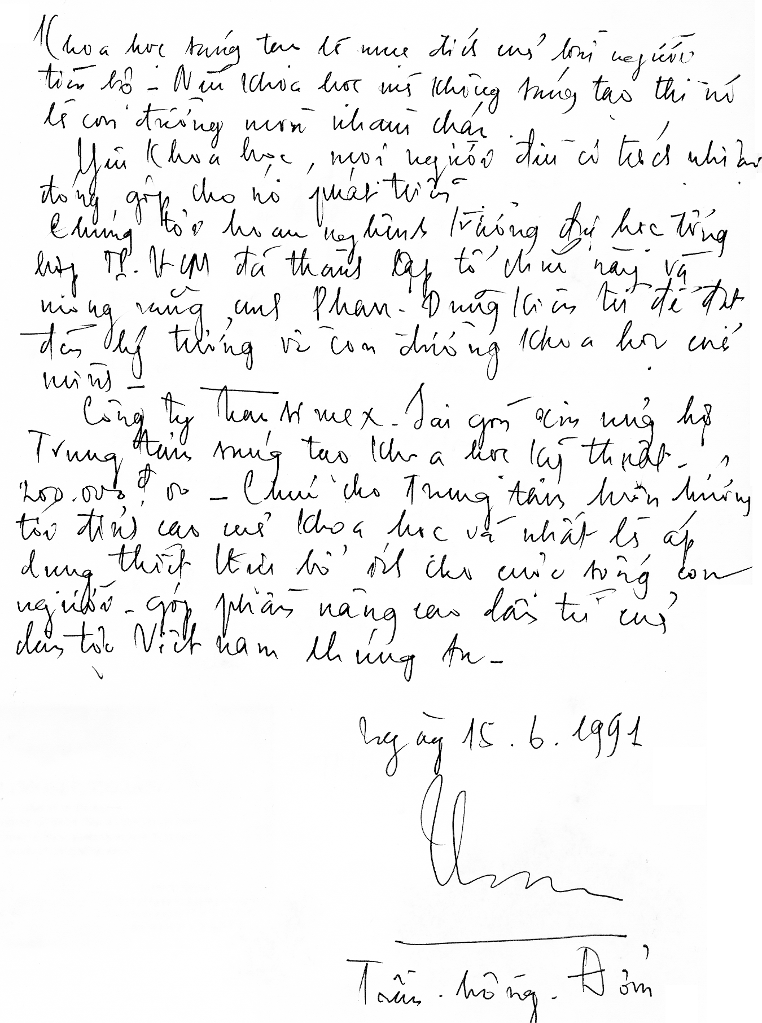 Khoa học sáng tạo là mục đích của loài người
tiến bộ - Nếu khoa học mà không sáng tạo thì nó
là con đường mòn nhàm chán
Yêu khoa học, mọi người đều có trách nhiệm
đóng góp cho nó phát triển
Chúng tôi hoan nghênh trường đại học tổng
hợp TP. HCM đã thành lập tổ chức này và
mong rằng anh Phan - Dũng kiên trì để đạt
đến lý tưởng và con đường khoa học của
mình -
Công ty Thanimex - Sài gòn xin ủng hộ
Trung tâm sáng tạo khoa học kỹ thuật -
200.000 đ 00 - Chúc cho Trung tâm luôn hướng
tới đỉnh cao của khoa học và nhất là áp
dụng thiết thực bổ ích cho cuộc sống con
người - góp phần nâng cao dân trí của
dân tộc Việt nam
Ngày 15.6.1991
Trần - Hồng - Đởm